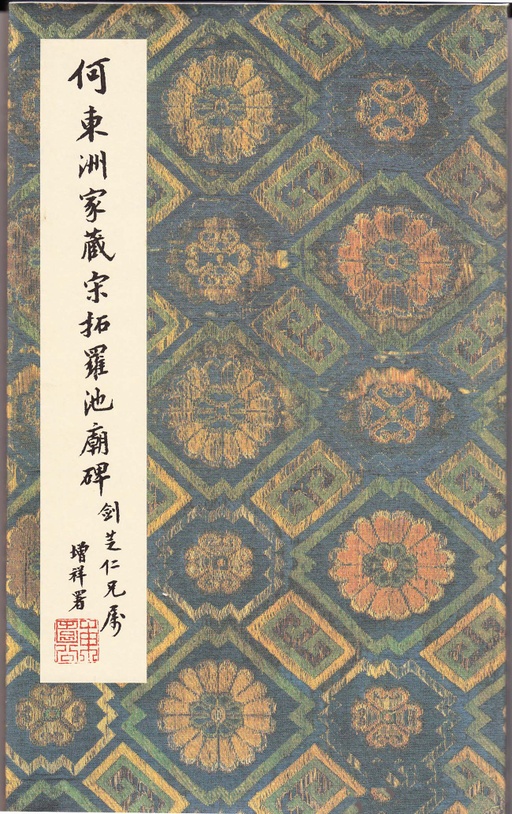 何東洲家藏宋拓羅池廟碑
劍芝仁兄屬
增祥署